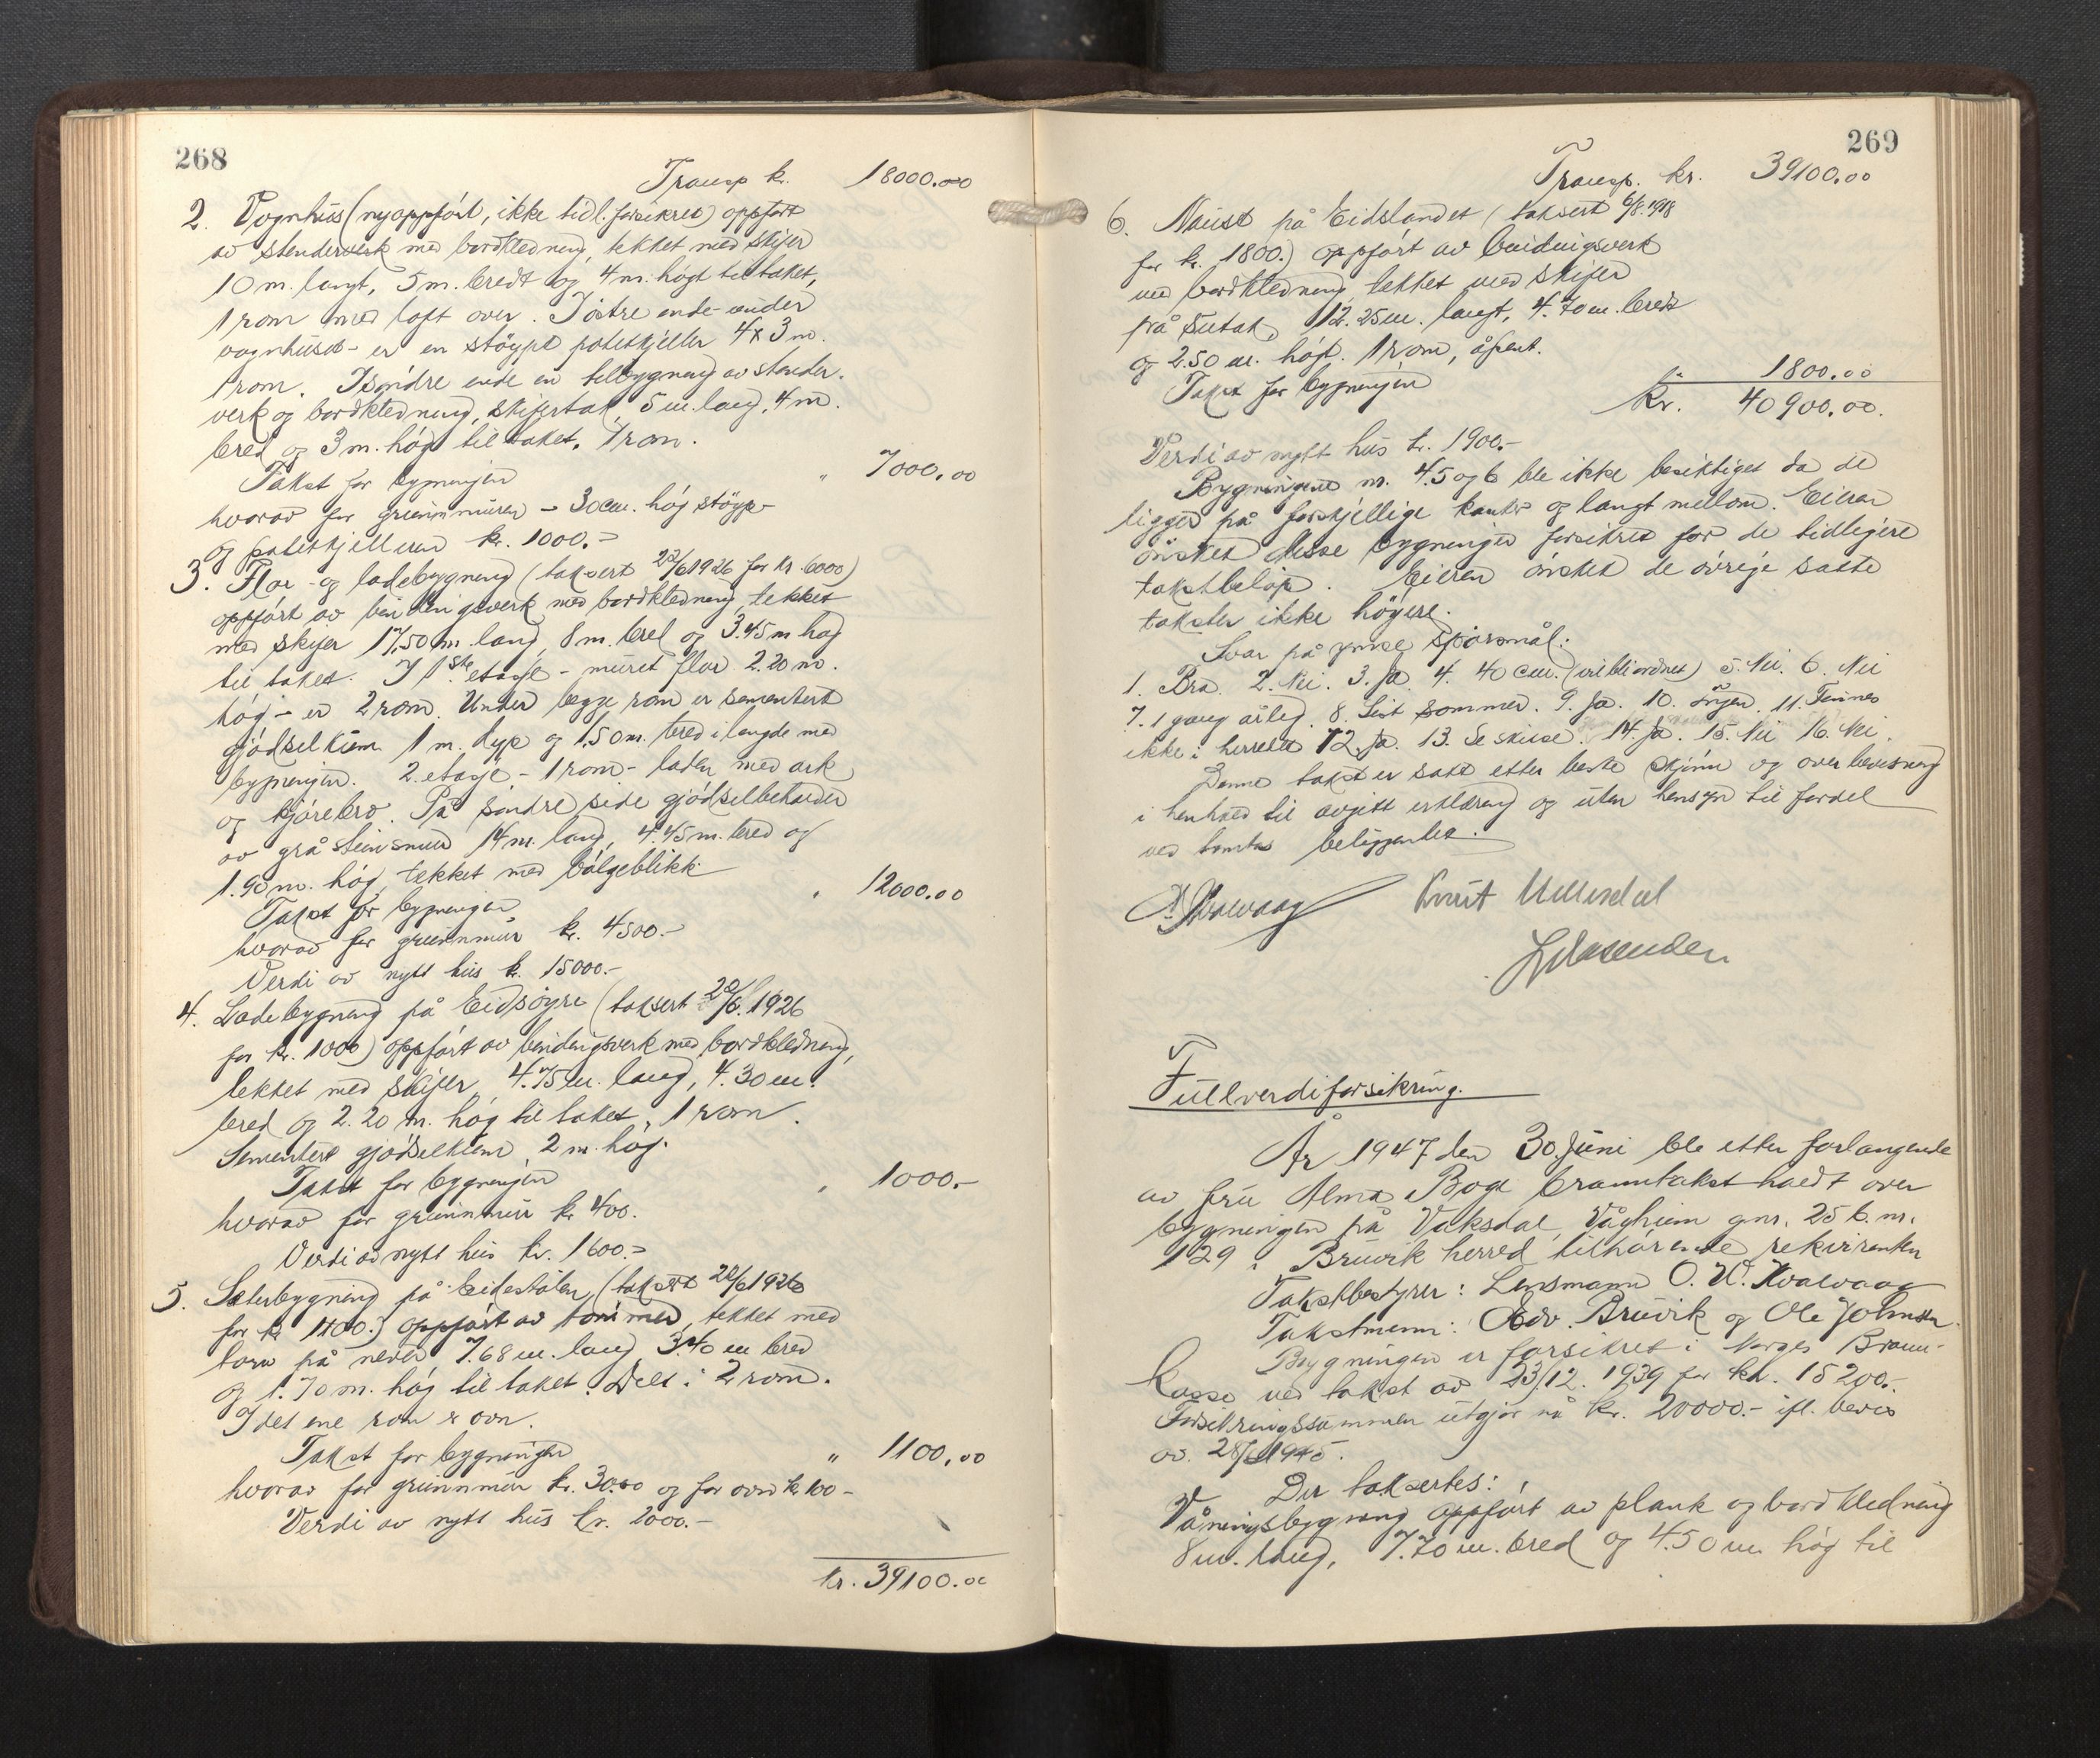 268
Transp kr. 18000.00
2. Vognhus (nyoppført, ikke tidl. forsikret) oppført
av stenderverk med bordkledning, tekket med skifer
10 m. langt, 5 m. bredt og 4 m. högt til taket,
1 rom med loft over. I östre ende under
vognhuset - er en stöypt potetkjeller 4 x 3 m.
1 rom. I söndre ende en tilbygning av stender-
verk og bordkledning, skifertak, 5 m. lang, 4 m.
bred og 3 m. hög til taket. 1 rom.
Takst for bygningen " 7000.00
hvorav for grunnmuren - 30 cm. høg stöypt
og potetkjelleren kr. 1000.-
3. Flor- og ladebygning (taksert 22/6 1926 for kr. 6000)
oppfört av bindingsverk med bordkledning, tekket
med skifer 17,50 m. lang, 8 m. bred og 3.45 m høg
til taket. I 1ste etasje - muret flor 2.20 m.
høg - er 2 rom. Under begge rom er sementert
gjødselkum 1 m. dyp og 1.50 m. bred i lengde med
bygningen. 2. etasje - 1 rom - laden med ark
og kjørebro. På söndre side gjödselbeholder
av grå steinsmur 14 m. lang, 4.45 m. bred og
1.90 m. høg, tekket med bölgeblikk.
Takst for bygningen " 12000.00
hvorav for grunnmur kr. 4500.-
Verdi av nytt hus kr. 15000.-
4. Ladebygning på Eidsöyre (taksert 22/6. 1926
for kr. 1000) oppfört av bindingsverk med bordkledning,
tekket med skifer, 4.75 m. lang, 4.30 m.
bred og 2.20 m. høg til taket, 1 rom.
Sementert gjödselkum, 2 m. høg.
Takst for bygningen " 1000.-
hvorav for grunnmur kr 400.
Verdi av nytt hus kr. 1600.-
5. Seterbygning på Eidestölen (taksert 22/6 1926
for kr 1100.) oppfört av tömmer, tekket med
torv på never 7.68 m. lang 3.40 m bred
og 1.70 m. høg til taket. Delt i 2 rom.
I det ene rom er ovn.
Takst for bygningen " 1100.00
hvorav for grunnmur kr. 30.00 og for ovn kr 100-
Verdi av nytt hus kr. 2000.-
kr. 39100.00
269
Transp. kr. 39100.00
6. Naust på Eidslandet (taksert 6/8.1918
for kr. 1800.) oppfört av bindingsverk
med bordkledning, tekket med skifer
på sutak, 12.25 m. langt, 4.70 m. bredt
og 2.50 m. högt. 1 rom, åpent.
Takst for bygningen " 1800.00
Kr. 40900.00.
Verdi av nytt hus kr. 1900.-
Bygningene nr. 4. 5 og 6 ble ikke besiktiget da de
ligger på forskjellige kanter og langt mellom. Eieren
önsket disse bygninger forsikret for de tidligere
takstbeløp. Eieren önsket de övrige satte
takster ikke högere.
Svar på ymse spörsmål:
1. Bra. 2. Nei. 3. Ja. 4. 40 cm. 5. Nei. 6. Nei
7. 1 gang årleg. 8. Sist sommer. 9. Ja. 10. Ingen. 11. Finnes
ikke i herredet 12. Ja. 13. Se skisse. 14. Ja. 15. Nei 16. Nei.
Denne takst er satt etter beste skjönn og overbevisning
i henhold til avgitt erklæring og uten hensyn til fordel
ved tomtas beliggenhet.
Knut
Fullverdiforsikring.
År 1947 den 30. Juni ble etter forlangende
av fru Alma Boge branntakst holdt over
bygningen på Vaksdal, Vågheim gnr. 25 b.nr.
129 i Bruvik herred tilhörende rekvirenten
Takstbestyrer: Lensmann O. W. Kvalvaag
Takstmenn: Edv. Bruvik og Ole Johnsen.
Bygningen er forsikret i Norges Brann-
kasse ved takst av 23/12. 1939 for kr. 15200.-
Forsikringssummen utgjör nå kr. 20000.- ifl. bevis
av. 28/ 1945.
Der taksertes:
Våningsbygning oppfört av plank og bordkledning
8 m. lang, 7.70 m. bred og 4.50 m høg til